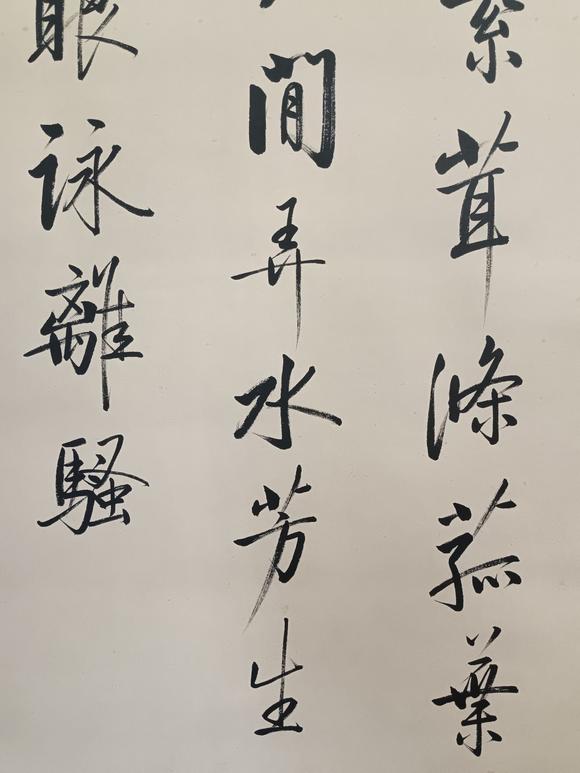 紫茸滌菰葉
閒弄水芳生
眼詠離騷